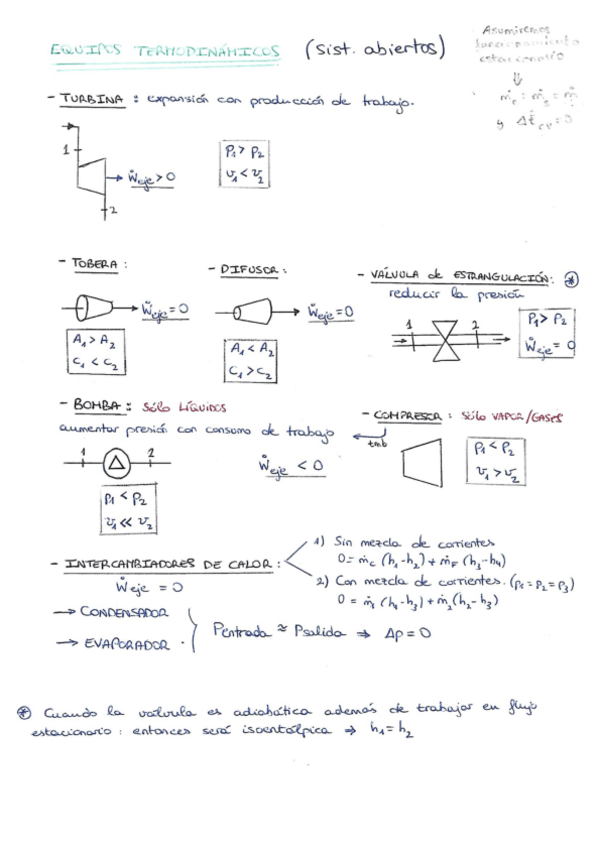 EQUIPOS TERMODINÁMICOS (sist. abiertos)
Asumiremos
funcionamiento
estacionario
⇓
ṁₑ = ṁₛ = ṁ
y ΔĖcv = 0
- TURBINA : expansión con producción de trabajo.
1
Ẇeje > 0
2
P₁ > P₂
v₁ < v₂
- TOBERA :
Ẇeje = 0
A₁ > A₂
C₁ < C₂
- DIFUSOR :
Ẇeje = 0
A₁ < A₂
C₁ > C₂
- VÁLVULA de ESTRANGULACIÓN: *
reducir la presión
1 2
P₁ > P₂
Ẇeje = 0
- BOMBA : sólo LÍQUIDOS
aumentar presión con consumo de trabajo
1 2
Ẇeje < 0
P₁ < P₂
v₁ << v₂
- COMPRESOR : sólo VAPOR/GASES
tmb
P₁ < P₂
v₁ > v₂
- INTERCAMBIADORES DE CALOR :
Ẇeje = 0
1) Sin mezcla de corrientes
0 = ṁc (h₁-h₂) + ṁF (h₃-h₄)
2) Con mezcla de corrientes. (p₁ = p₂ = p₃)
0 = ṁ₁ (h₁-h₃) + ṁ₂ (h₂-h₃)
→ CONDENSADOR
→ EVAPORADOR .
Pentrada ≈ Psalida ⇒ Δp = 0
* Cuando la valvula es adiabática además de trabajar en flujo
estacionario : entonces será isoentálpica ⇒ h₁ = h₂